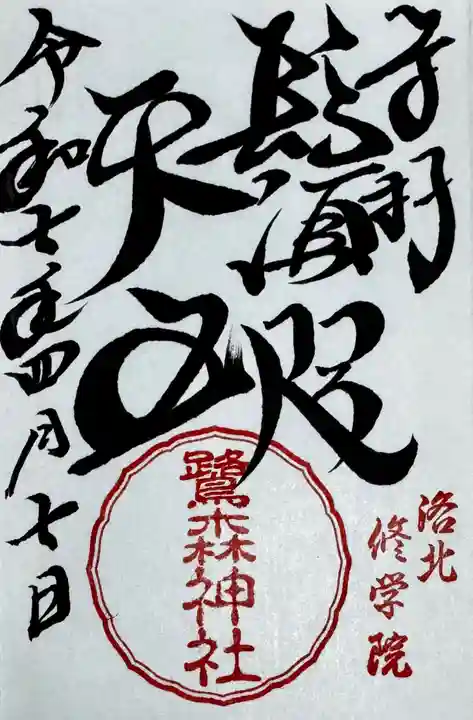 奉拝
鬚咫
天王
令和七年四月七日
洛北
修学院
鷺森神社